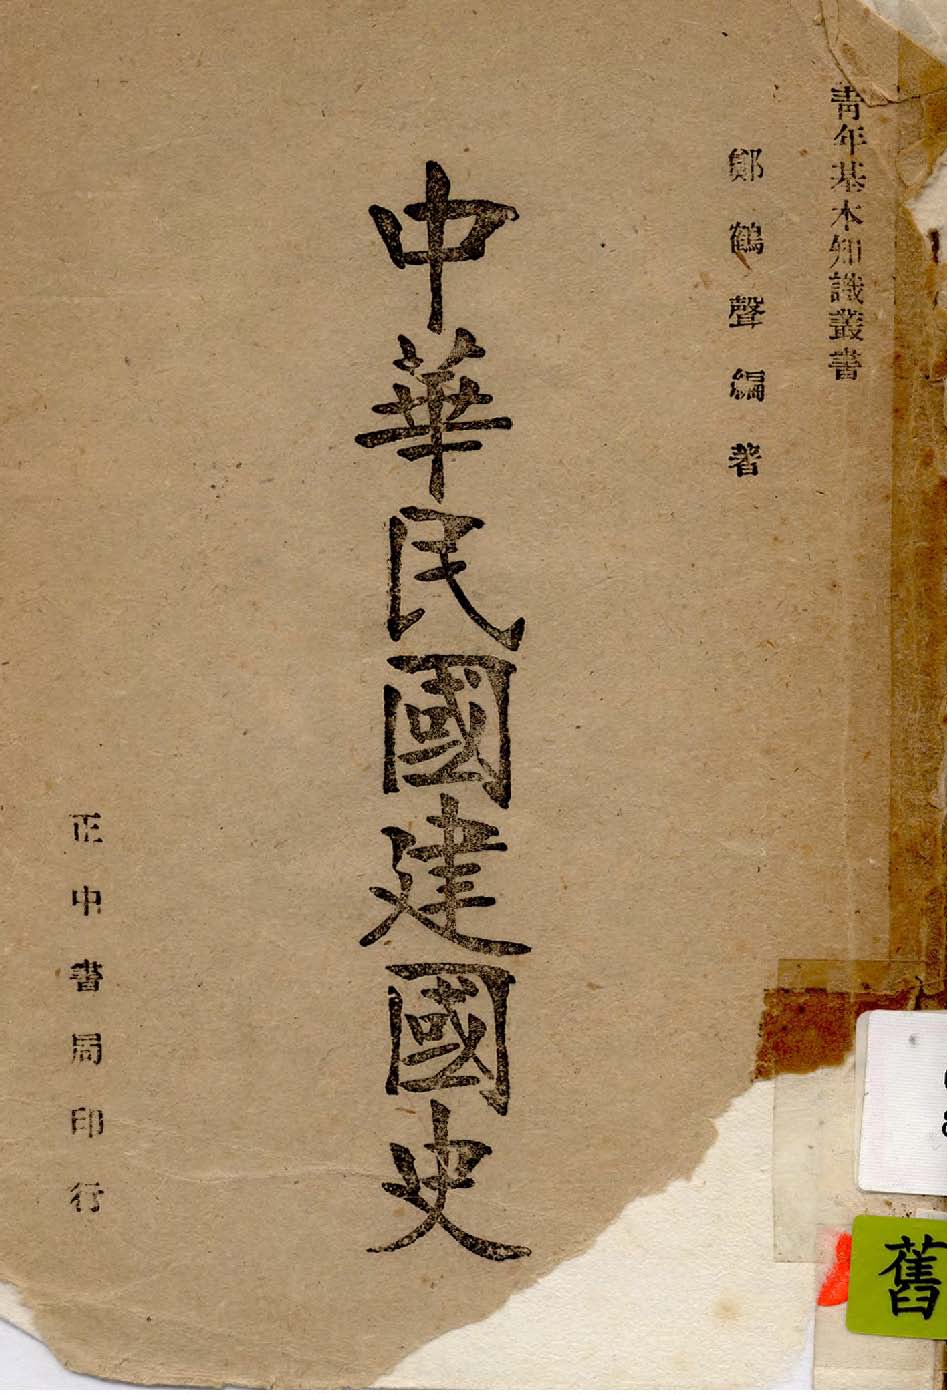 青年基本知識叢書
鄭鶴聲編著
中華民國建國史
正中書局印行
舊